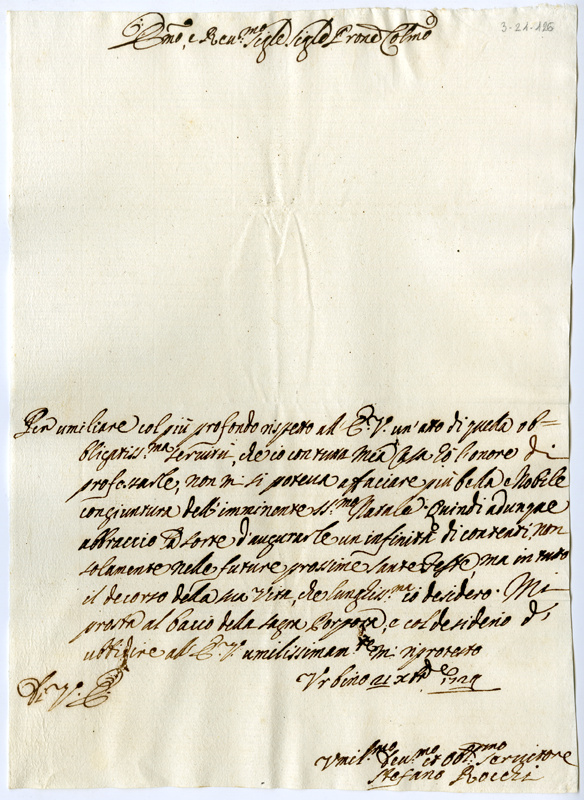 3-21-126
Emo, e Reu.mo Sig.re Sig.re Prone Colmo
Per umiliare col più profondo rispetto all'E.V. un'atto di quella ob=
bligatiss.ma Seruitù, che io con tutta mea Casa hò l'onore di
professarle, non mi si poteua affaciare più bella e Nobile
congiuntura dell'imminente SS.mo Natale. Quindi adunque
abbraccio la sorte d'augurarle un infinità di contenti, non
solamente nelle future prossime Sante Feste ma in tutto
il decorso della sua Vita, che lunghiss.ma io desidero. Mi
prostro al bacio della Sagra Porpora, e col desiderio di
ubbidire all'E.V. umilissimam.te mi riprotesto
Urbino 21 Xbre
Umil.mo Deu.mo et Obl.mo Seruitore
Stefano Rocchi